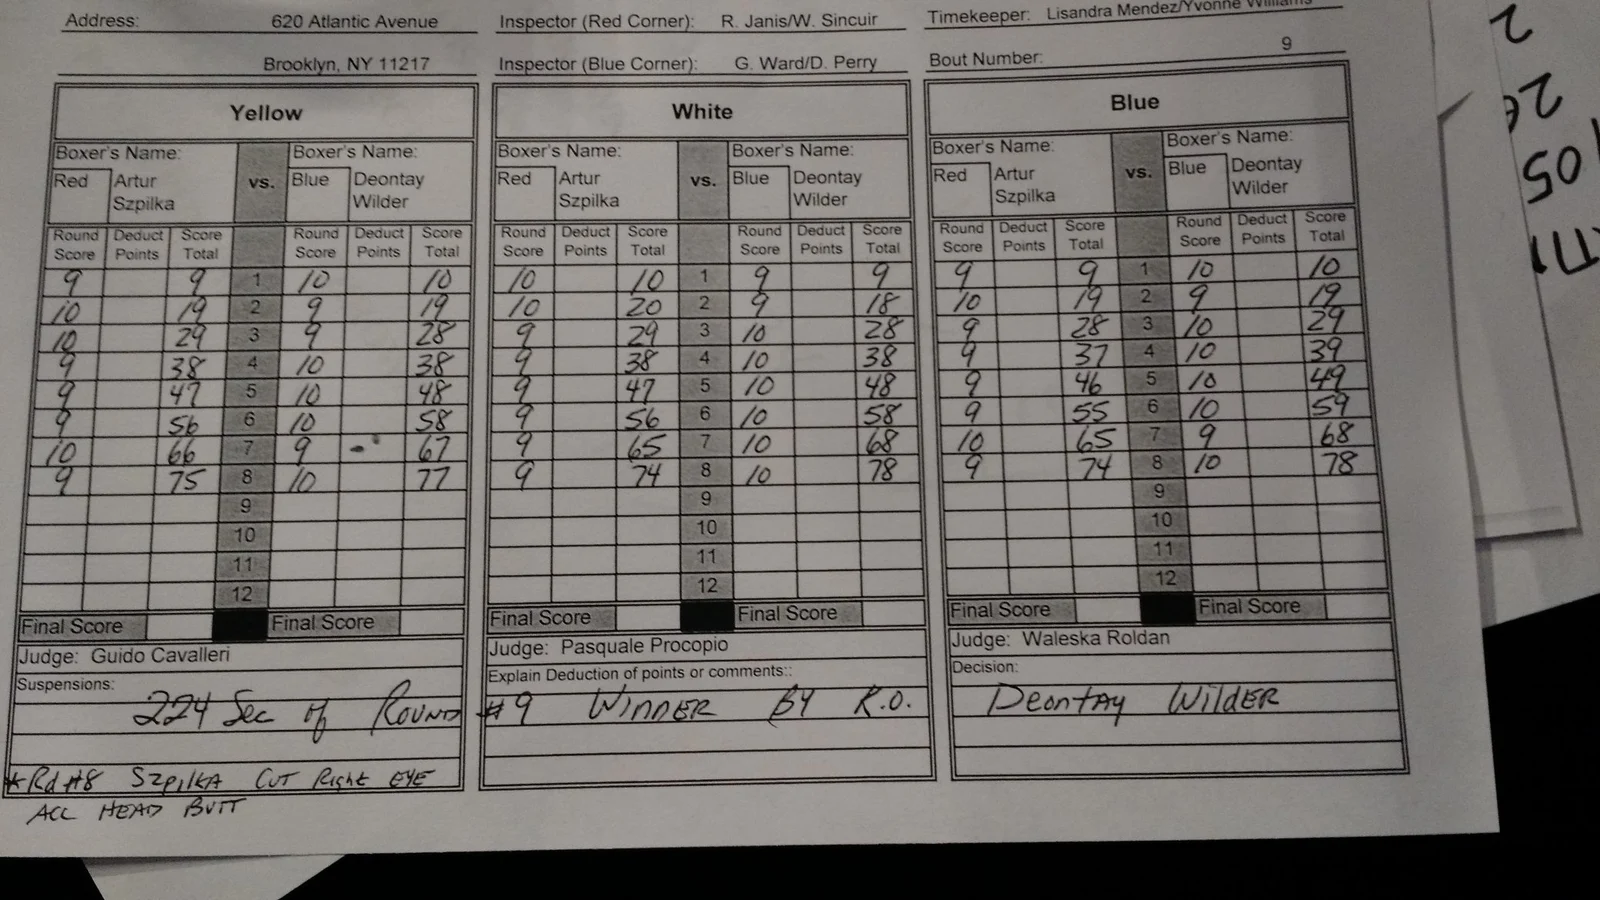 Address: 620 Atlantic Avenue Inspector (Red Corner): R. Janis/W. Sincuir Timekeeper: Lisandra Mendez/Yvonne Williams
Brooklyn, NY 11217 Inspector (Blue Corner): G. Ward/D. Perry Bout Number: 9
Yellow
Boxer's Name: vs. Boxer's Name:
Red Artur Szpilka Blue Deontay Wilder
Round Score Deduct Points Score Total Round Score Deduct Points Score Total
9 9 1 10 10
10 19 2 9 19
10 29 3 9 28
9 38 4 10 38
9 47 5 10 48
9 56 6 10 58
10 66 7 9 - 67
9 75 8 10 77
9
10
11
12
Final Score Final Score
Judge: Guido Cavalleri
Suspensions:
White
Boxer's Name: vs. Boxer's Name:
Red Artur Szpilka Blue Deontay Wilder
Round Score Deduct Points Score Total Round Score Deduct Points Score Total
10 10 1 9 9
10 20 2 9 18
9 29 3 10 28
9 38 4 10 38
9 47 5 10 48
9 56 6 10 58
9 65 7 10 68
9 74 8 10 78
9
10
11
12
Final Score Final Score
Judge: Pasquale Procopio
Explain Deduction of points or comments::
Blue
Boxer's Name: vs. Boxer's Name:
Red Artur Szpilka Blue Deontay Wilder
Round Score Deduct Points Score Total Round Score Deduct Points Score Total
9 9 1 10 10
10 19 2 9 19
9 28 3 10 29
9 37 4 10 39
9 46 5 10 49
9 55 6 10 59
10 65 7 9 68
9 74 8 10 78
9
10
11
12
Final Score Final Score
Judge: Waleska Roldan
Decision:
224 Sec of ROUND #9 WINNER BY K.O. Deontay Wilder
*Rd #8 SzpilkA Cut Right EYE
ACC HEAD BUTT